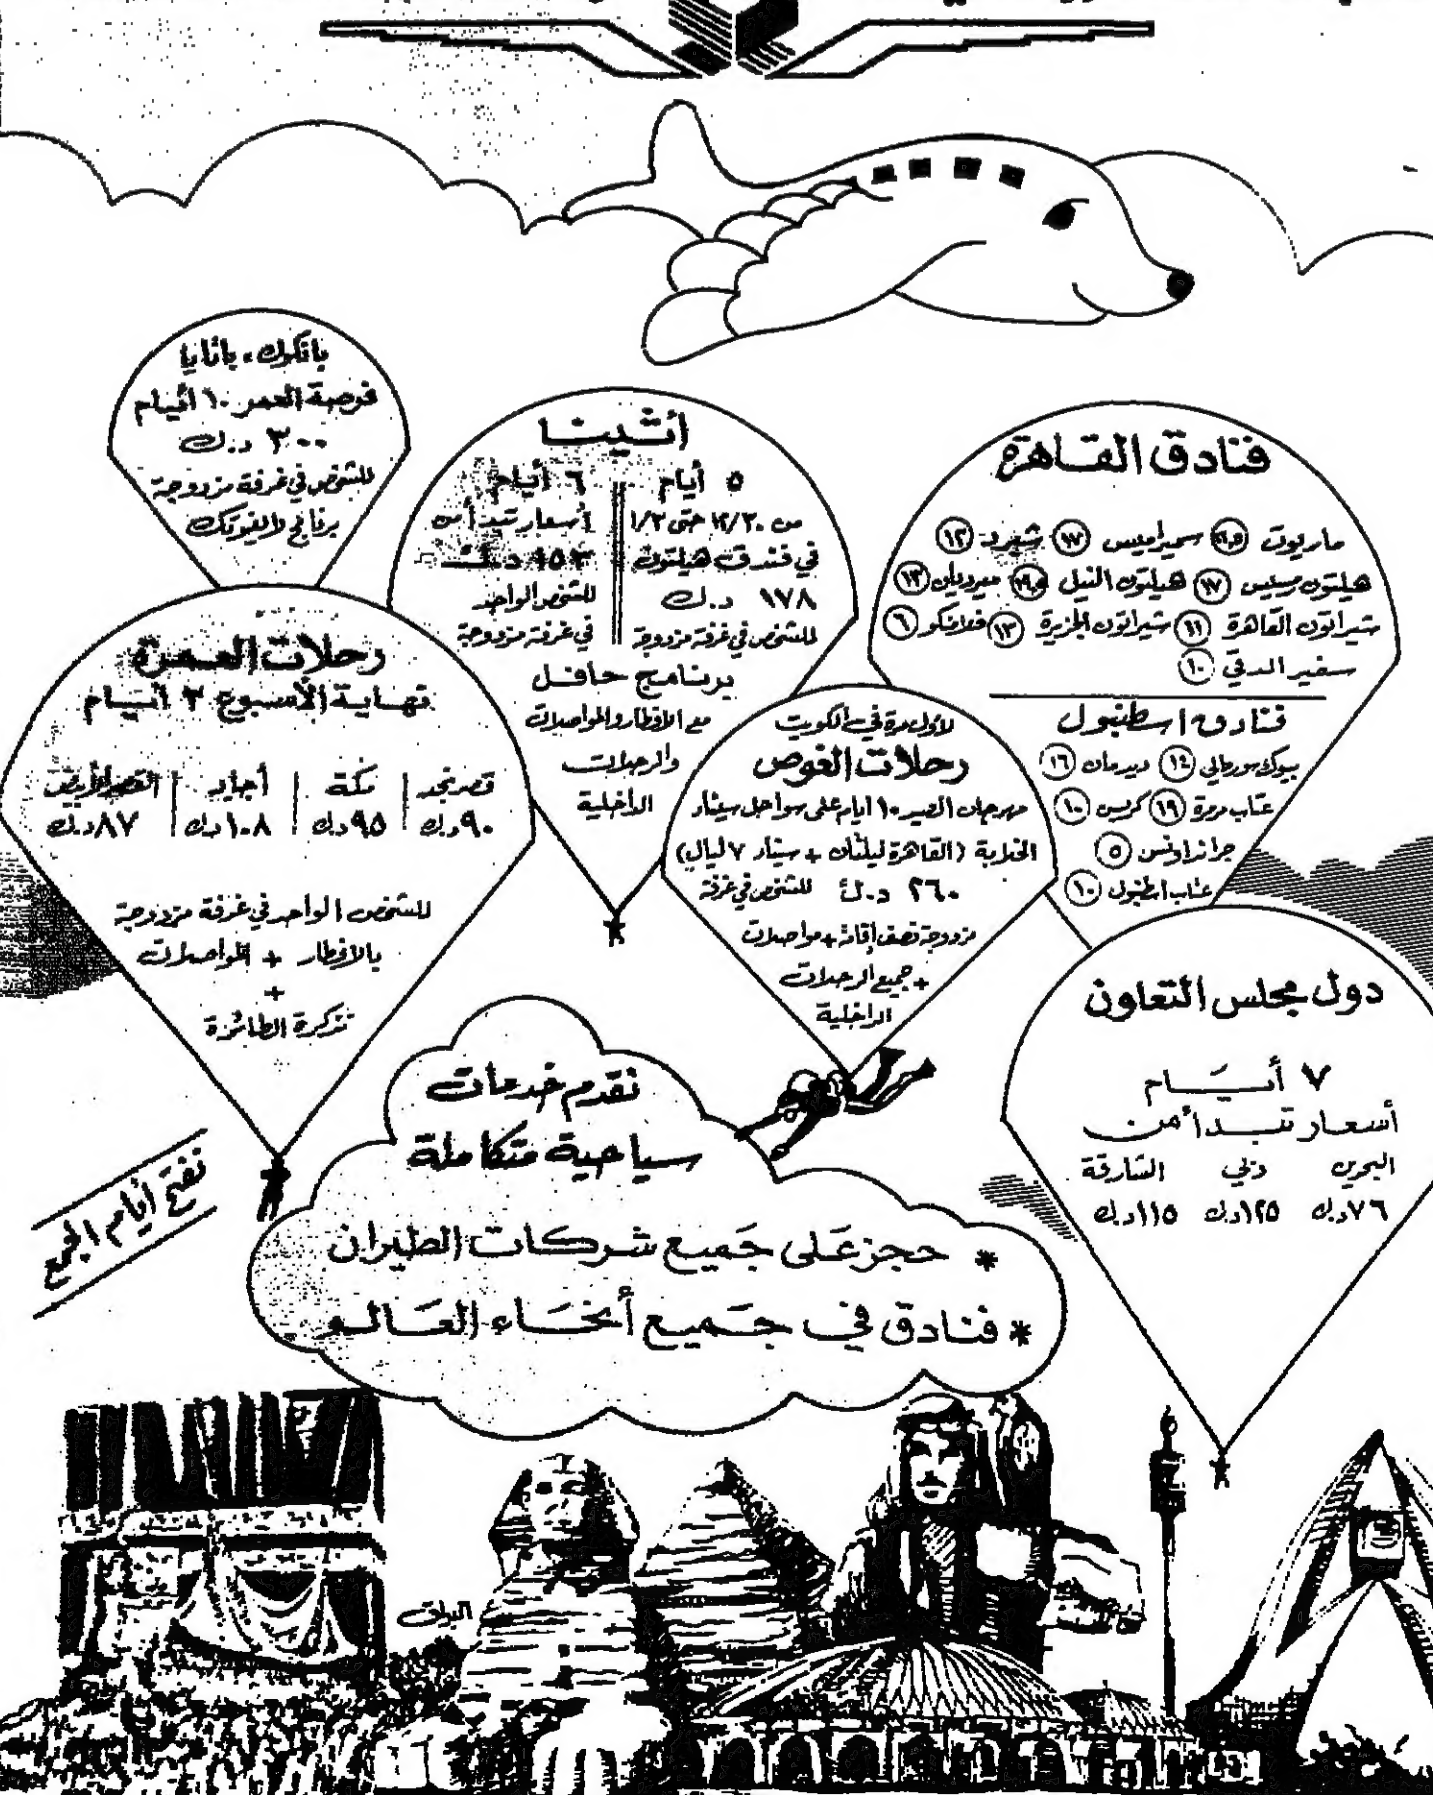 بانكوك، باتايا
فرصة العمر ١٠ أيام
٣٠٠ د.ك
للشخص في غرفة مزدوجة
أثينا
٥ أيام
من ١٢/٣٠ حتى ١/٣
في فندق هيلتون
١٧٨ د.ك
للشخص في غرفة مزدوجة
٦ أيام
أسعار تبدأ من
١٥٣ د.ك
للشخص الواحد
في غرفة مزدوجة
برنامج حافل
مع الافطار والمواصلات
والرحلات
الداخلية
فنادق القاهرة
ماريوت سميراميس ١٧ شبرد ١٢
هيلتون رمسيس ١٧ هيلتون النيل ميريديان ١٣
شيراتون القاهرة ١١ شيراتون الجزيرة ١٣ فلامنكو ٦
سفير الدقي ١٠
فنادق اسطنبول
١٤ ديدمان ١٦
١٩ كريس ١٠
٥
١٠
رحلات العمرة
نهاية الأسبوع ٣ أيام
قصر نجد مكة أجياد القصر الأبيض
٩٠ د.ك ٩٥ د.ك ١٠٨ د.ك ٨٧ د.ك
للشخص الواحد في غرفة مزدوجة
بالافطار + المواصلات
+
تذكرة الطائرة
لأول مرة في الكويت
رحلات الغوص
مهرجان الصيد ١٠ أيام على سواحل سيناء
الخلابة (القاهرة ليلتان + سيناء ٧ ليال)
٢٦٠ د.ك للشخص في غرفة
مزدوجة نصف إقامة + مواصلات
+ جميع الرحلات
الداخلية
دول مجلس التعاون
٧ أيام
أسعار تبدأ من
البحرين دبي الشارقة
٧٦ د.ك ١٢٥ د.ك ١١٥ د.ك
نقدم خدمات
سياحية متكاملة
* حجز على جميع شركات الطيران
* فنادق في جميع أنحاء العالم
نفتح أيام الجمع